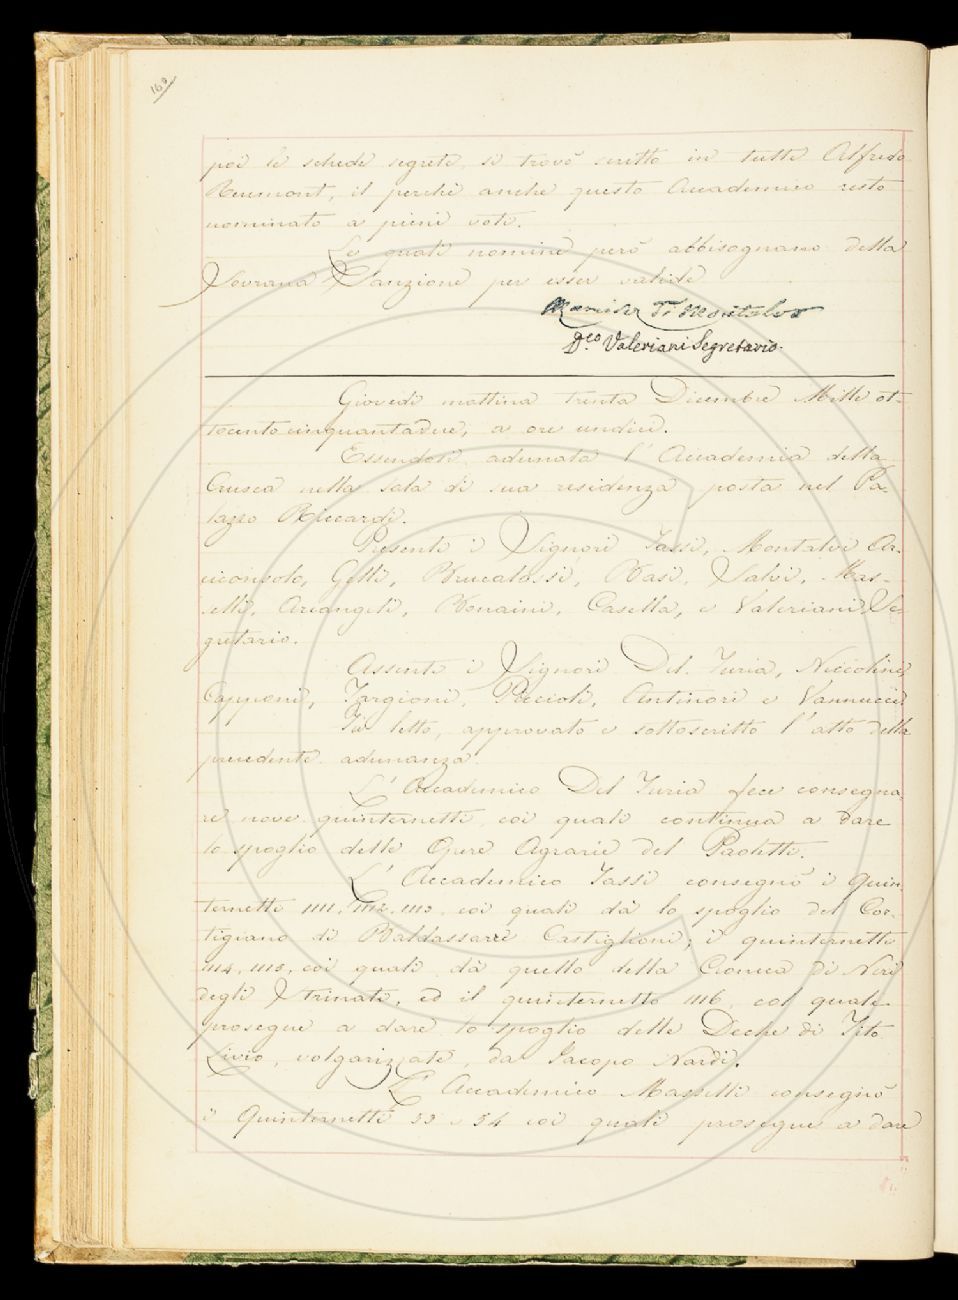 160
poi le schede segrete, si trovò scritto in tutte Alfredo
Reumont, il perchè anche questo Accademico restò
nominato a pieni voti.
Le quali nomine però abbisognano della
Sovrana Sanzione per esser valide
Dco Valeriani Segretario.
Giovedì mattina trenta Dicembre Mille ot-
tocento cinquantadue, a ore undici.
Essendosi adunata l' Accademia della
Crusca nella sala di sua residenza posta nel Pa-
lazzo Riccardi.
Presenti i Signori Tassi, Montalvi Ar-
ciconsolo, Gelli, Brucalassi, Basi, Salvi, Mas-
selli, Arcangeli, Bonaini, Casella, e Valeriani Se-
gretario.
Assenti i Signori Del Furia, Niccolini,
Capponi, Targioni, Puccioli, Antinori e Vannucci.
Fu letto, approvato e sottoscritto l' atto della
precedente adunanza.
L' Accademico Del Furia fece consegna-
re nove quinternetti, coi quali continua a dare
lo spoglio delle Opere Agrarie del Paoletti.
L' Accademico Tassi consegnò i Quin-
ternetti 1111, 1112, 1113, coi quali dà lo spoglio del Cor-
tigiano di Baldassarre Castiglioni; i quinternetti
1114, 1115, coi quali dà quello della Cronica di Neri
degli Strinati, ed il quinternetto 1116, col quale
prosegue a dare lo spoglio delle Deche di Tito
Livio, volgarizzate, da Jacopo Nardi.
L' Accademico Masselli consegnò
i Quinternetti 53 e 54 coi quali prosegue a dare